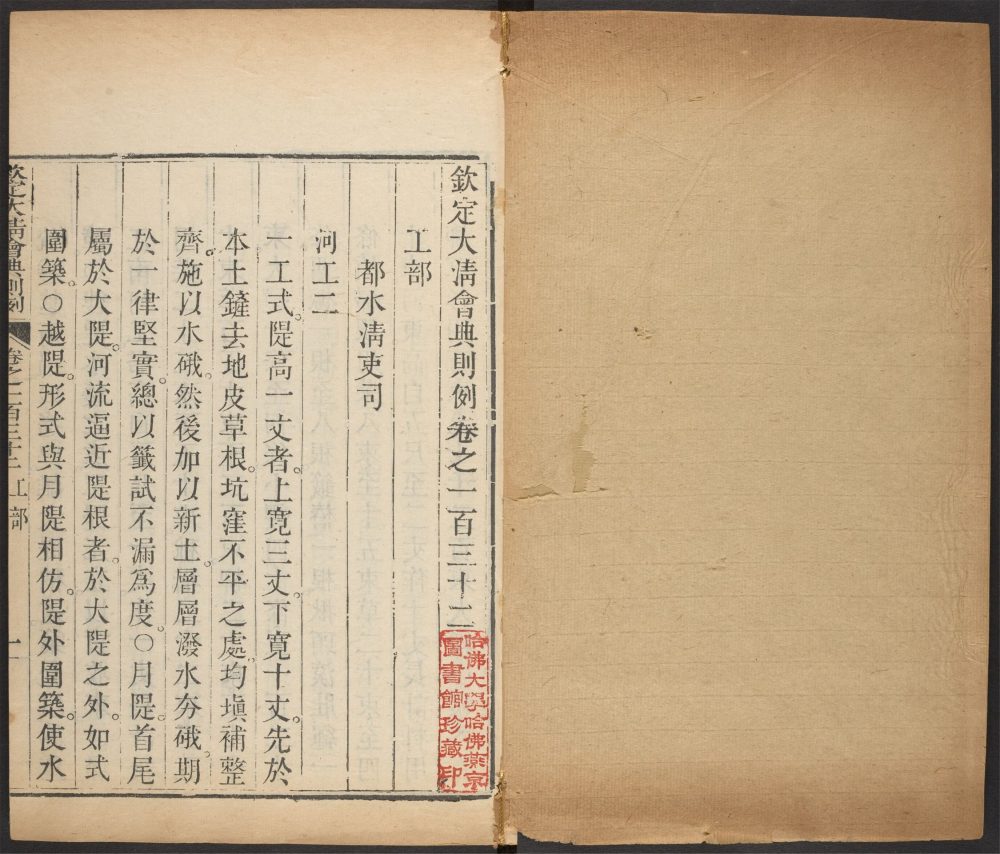 欽定大清會典則例卷之一百三十二
哈佛大學哈佛燕京
圖書館珍藏印
工部
都水清吏司
河工二
一工式隄高一丈者上寬三丈下寬十丈先於
本土鏟去地皮草根坑窪不平之處均塡補整
齊施以水硪然後加以新土層層潑水夯硪期
於一律堅實總以籤試不漏爲度○月隄首尾
屬於大隄河流逼近隄根者於大隄之外如式
圍築○越隄形式與月隄相仿隄外圍築使水
欽定大清會典則例
卷之一百三十二 工部
一